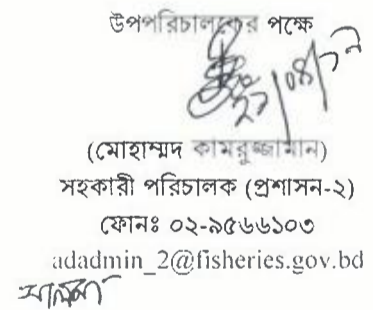 উপপরিচালকের পক্ষে
(মোহাম্মদ কামরুজ্জামান)
সহকারী পরিচালক (প্রশাসন-২)
ফোনঃ ০২-৯৫৬৬১০৩
adadmin_2@fisheries.gov.bd